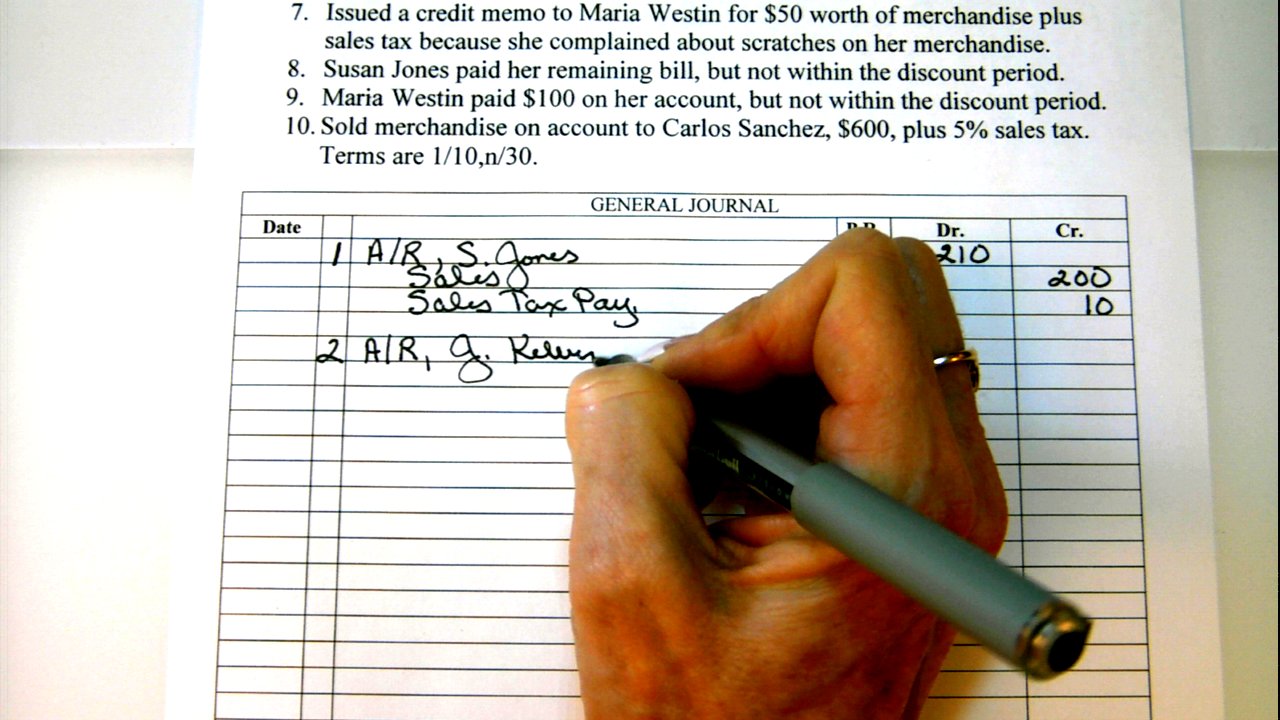 7. Issued a credit memo to Maria Westin for $50 worth of merchandise plus
sales tax because she complained about scratches on her merchandise.
8. Susan Jones paid her remaining bill, but not within the discount period.
9. Maria Westin paid $100 on her account, but not within the discount period.
10. Sold merchandise on account to Carlos Sanchez, $600, plus 5% sales tax.
Terms are 1/10,n/30.
GENERAL JOURNAL
Date Dr. Cr.
1 A/R, S. Jones 210
Sales 200
Sales Tax Pay. 10
2 A/R, J.